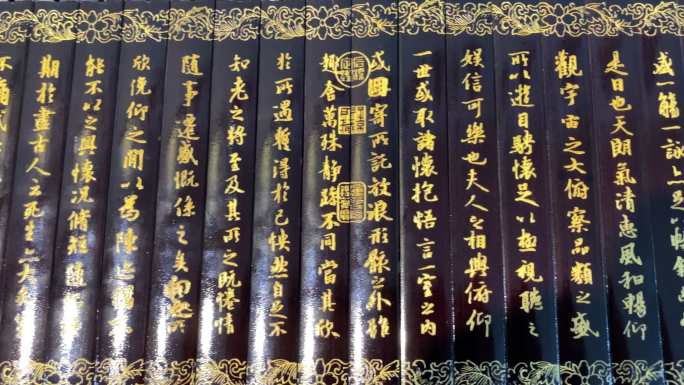 盛一觴一詠亦足以暢敘幽
是日也天朗氣清惠風和暢仰
觀宇宙之大俯察品類之盛
所以遊目騁懷足以極視聽之
娛信可樂也夫人之相與俯仰
一世或取諸懷抱悟言一室之內
或因寄所託放浪形骸之外雖
趣舍萬殊靜躁不同當其欣
於所遇暫得於己快然自足不
知老之將至及其所之既惓情
隨事遷感慨係之矣向之所
欣俛仰之間以為陳迹猶不
能不以之興懷況脩短隨化
期於盡古人云死生亦大矣豈
不痛哉